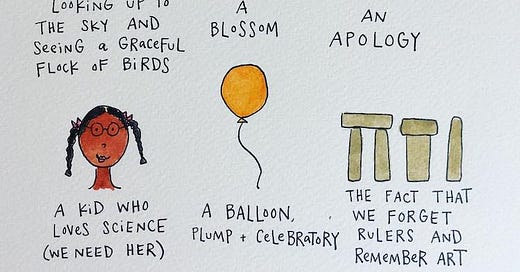 LOOKING UP TO
THE SKY AND
SEEING A GRACEFUL
FLOCK OF BIRDS
A
BLOSSOM
AN
APOLOGY
A KID WHO
LOVES SCIENCE
(WE NEED HER)
A BALLOON,
PLUMP + CELEBRATORY
THE FACT THAT
WE FORGET
RULERS AND
REMEMBER ART